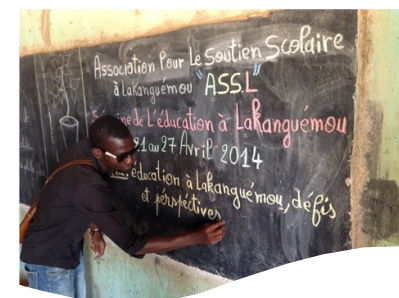 Association Pour Le Soutien Scolaire
à Lakanguémou "ASS.L"
de L'éducation à Lakanguémou
21 au 27 Avril 2014
éducation à Lakanguémou, défis
et pérspéctives